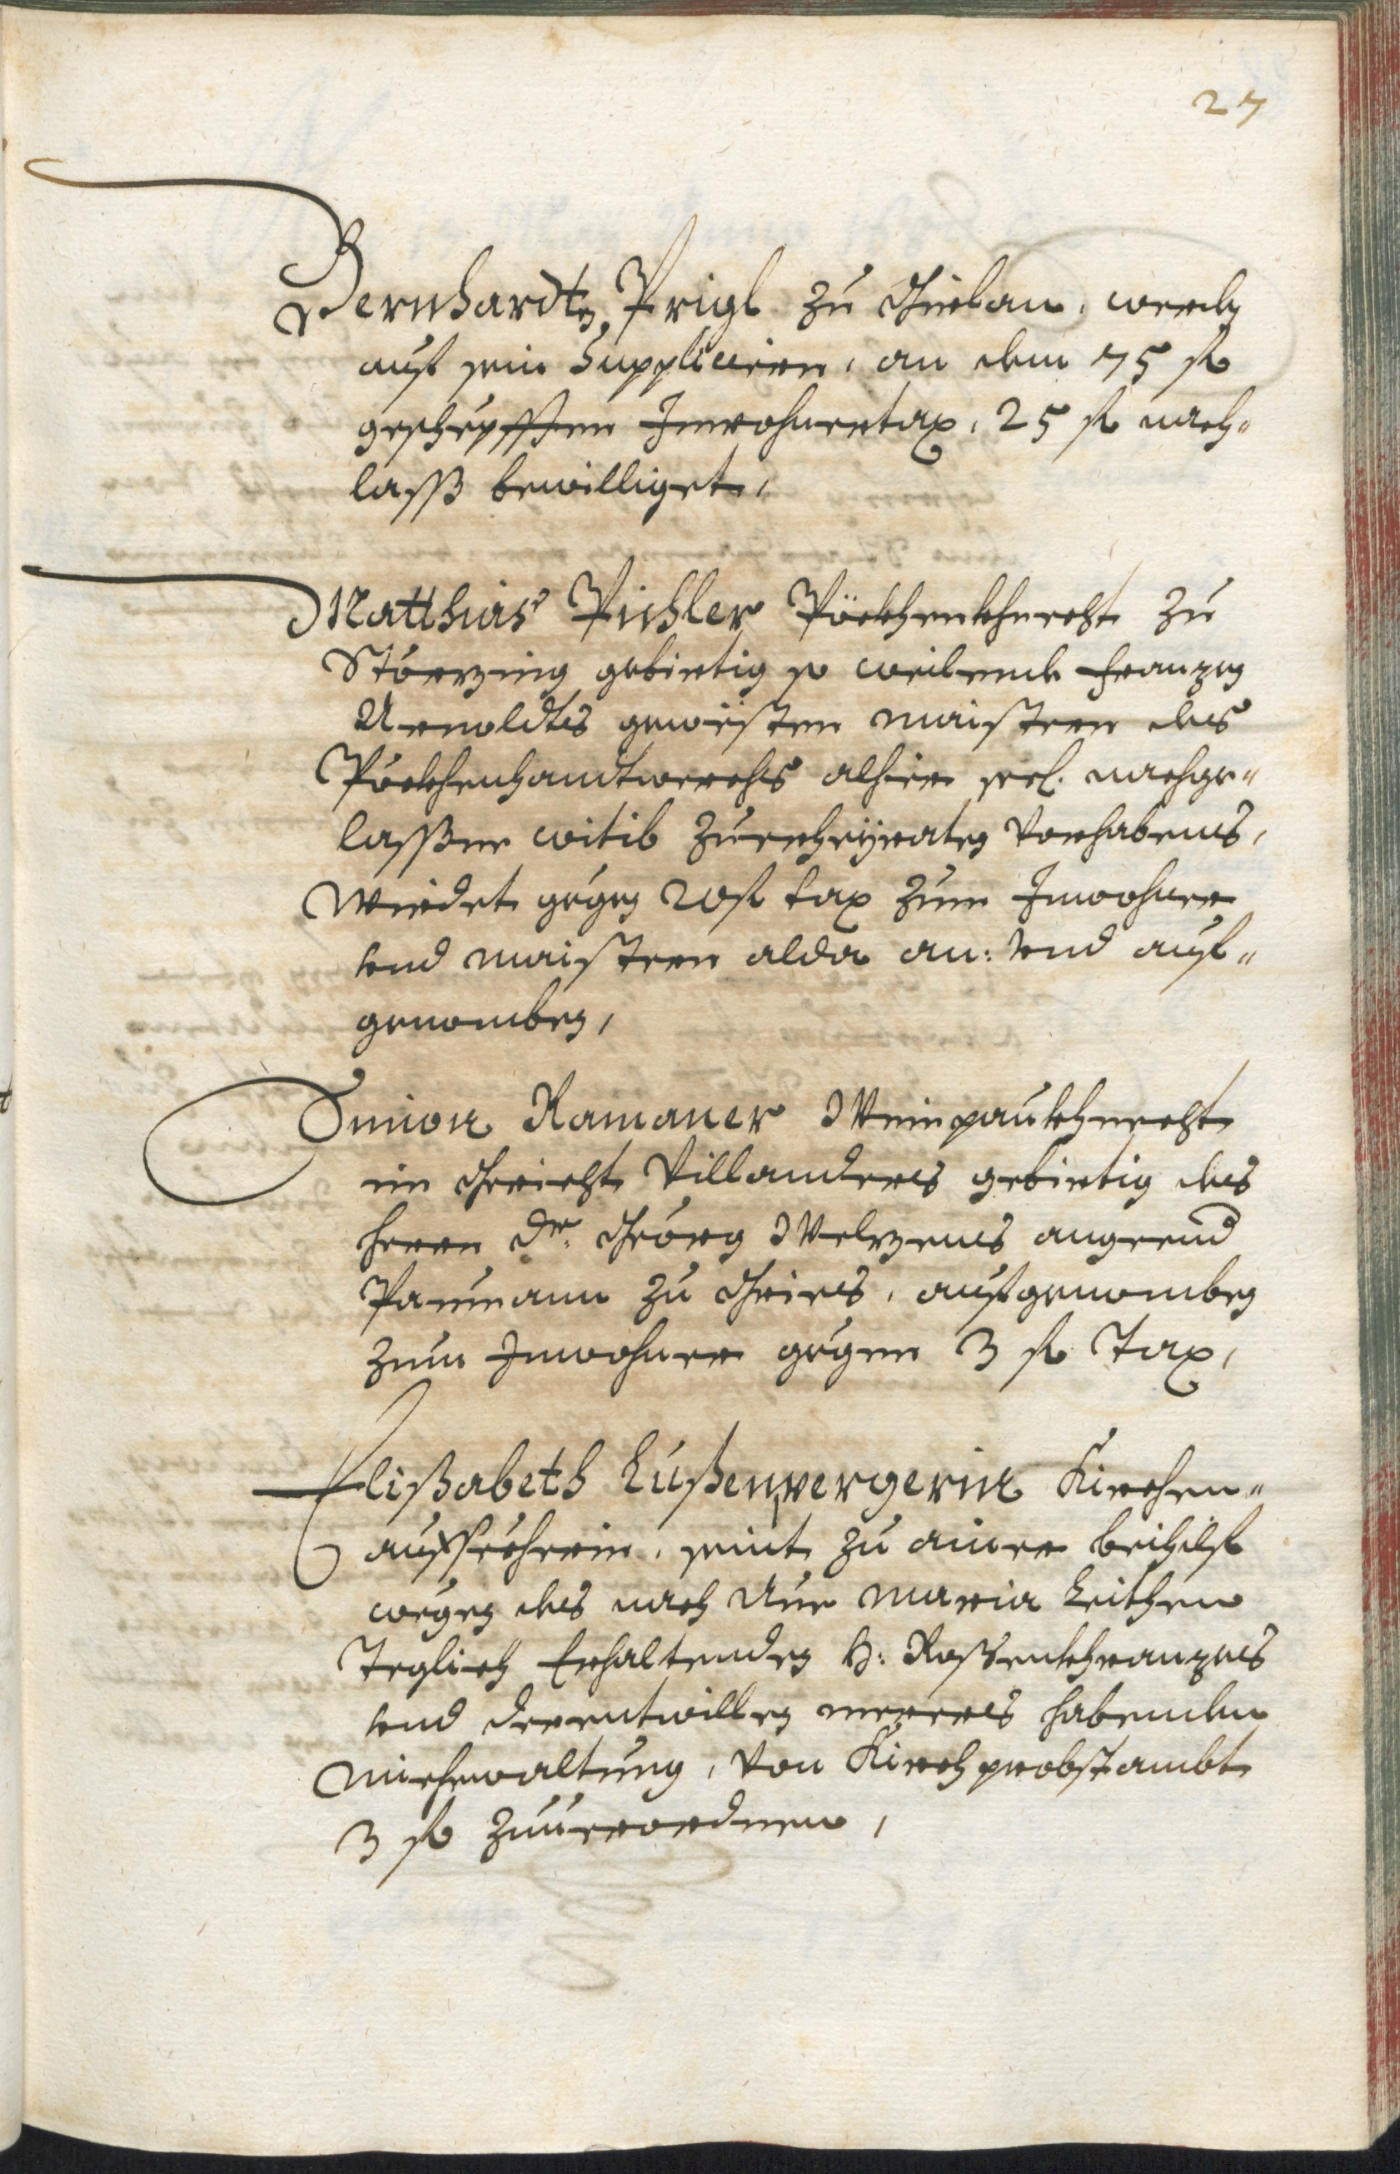 27
Bernhardtn Prigl zu Grieban, werdn
auf sein Suppliciern, an dem 75 fl
geschepfften Inwohnertax, 25 fl nach„
lasß bewilliget,
Matthias Pichler Pöckhenkhnecht zu
Störzing gebirtig so weilendt Franzen
Arnoldts gewesten maistern des
Pöckhenhandtwerchs alhier seel. nachge„
lasßne witib zuerheyraten vorhabens,
wirdet gegen 20 fl tax zum Inwohner
vnd maistern alda an: vnd auf„
genomben,
Simon Ramaner Weinpaukhnecht
im Gericht Villanders gebirtig des
Herrn Dr. Georg Welzens angeend
Paumann zu Gries, aufgenomben
zum Inwohner gegen 3 fl Tax,
Elißabeth Kirchen„
auskherin, seint zu ainer beihilf
wegen des nach Aue Maria Leithen
Teglich Erhaltenden H: Rosßenkhranzes
vnd derentwillen merers habenden
miehewaltung, von Kirchprobstambt
3 fl zuuerordnen,